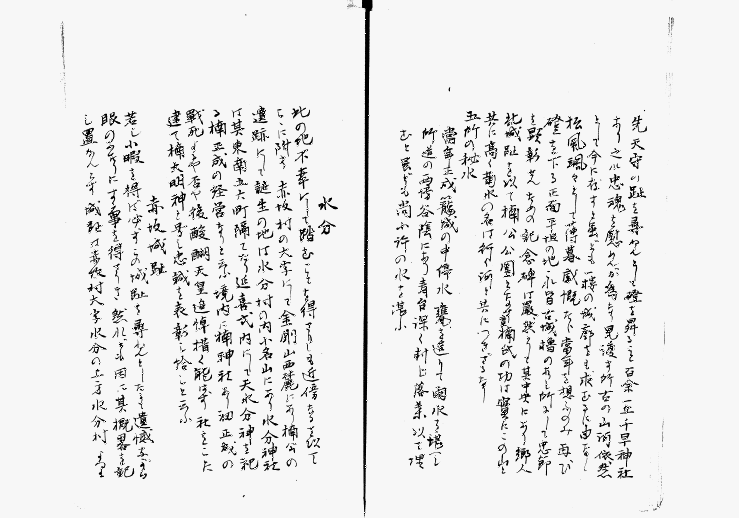 先天守の趾を尋ねんとて磴を昇ること百余一丘千早神社
あり之れ忠魂を慰めんが為なり見渡す所古の山河依然
として今に在すと雖も一楼の城廓も求むるに由なし
松風颯々として薄暮感慨た当年を想ふのみ再び
磴を下る正面平坦の地永昔古城櫓のありし所にして忠節
を顕彰せんための記念碑は厳然として其中央にあり郷人
此城趾を以て楠公公園となす楠氏の功は実にこの山と
共に高く菊水の名は行く河と共につきざるなり
五所の秘水
当年正成籠城の中停水甕を造りて雨水を堪へし
所道の西傍谷陰にあり青苔深く封じ落葉以て埋
むと雖ども尚ほ許の水を湛ふ
水分
此の地不幸にして踏むことを得ざりしも近傍なるを以て
こゝに附す赤坂村の大字にて金剛山西麓にあり楠公の
遺跡にして誕生の地は水分村の内小名山にあり水分神社
は其東南五六町隔てたり延喜式内にて天水分神を祀
る楠正成の経営なりと云ふ境内に楠神社あり初正成の
戦死するや否や後醍醐天皇追悼措く能はず社をこた
建て楠大明神と号し忠誠を表彰し給ひしと云ふ
赤坂城趾
若し小暇を得ば必ずこの城趾を尋ねんとしたるも遺憾ながら
眼のあたりにする事を得ざりき然れども因に其概略を記
し置かんとす城趾は赤坂村大字水分の五方水分村